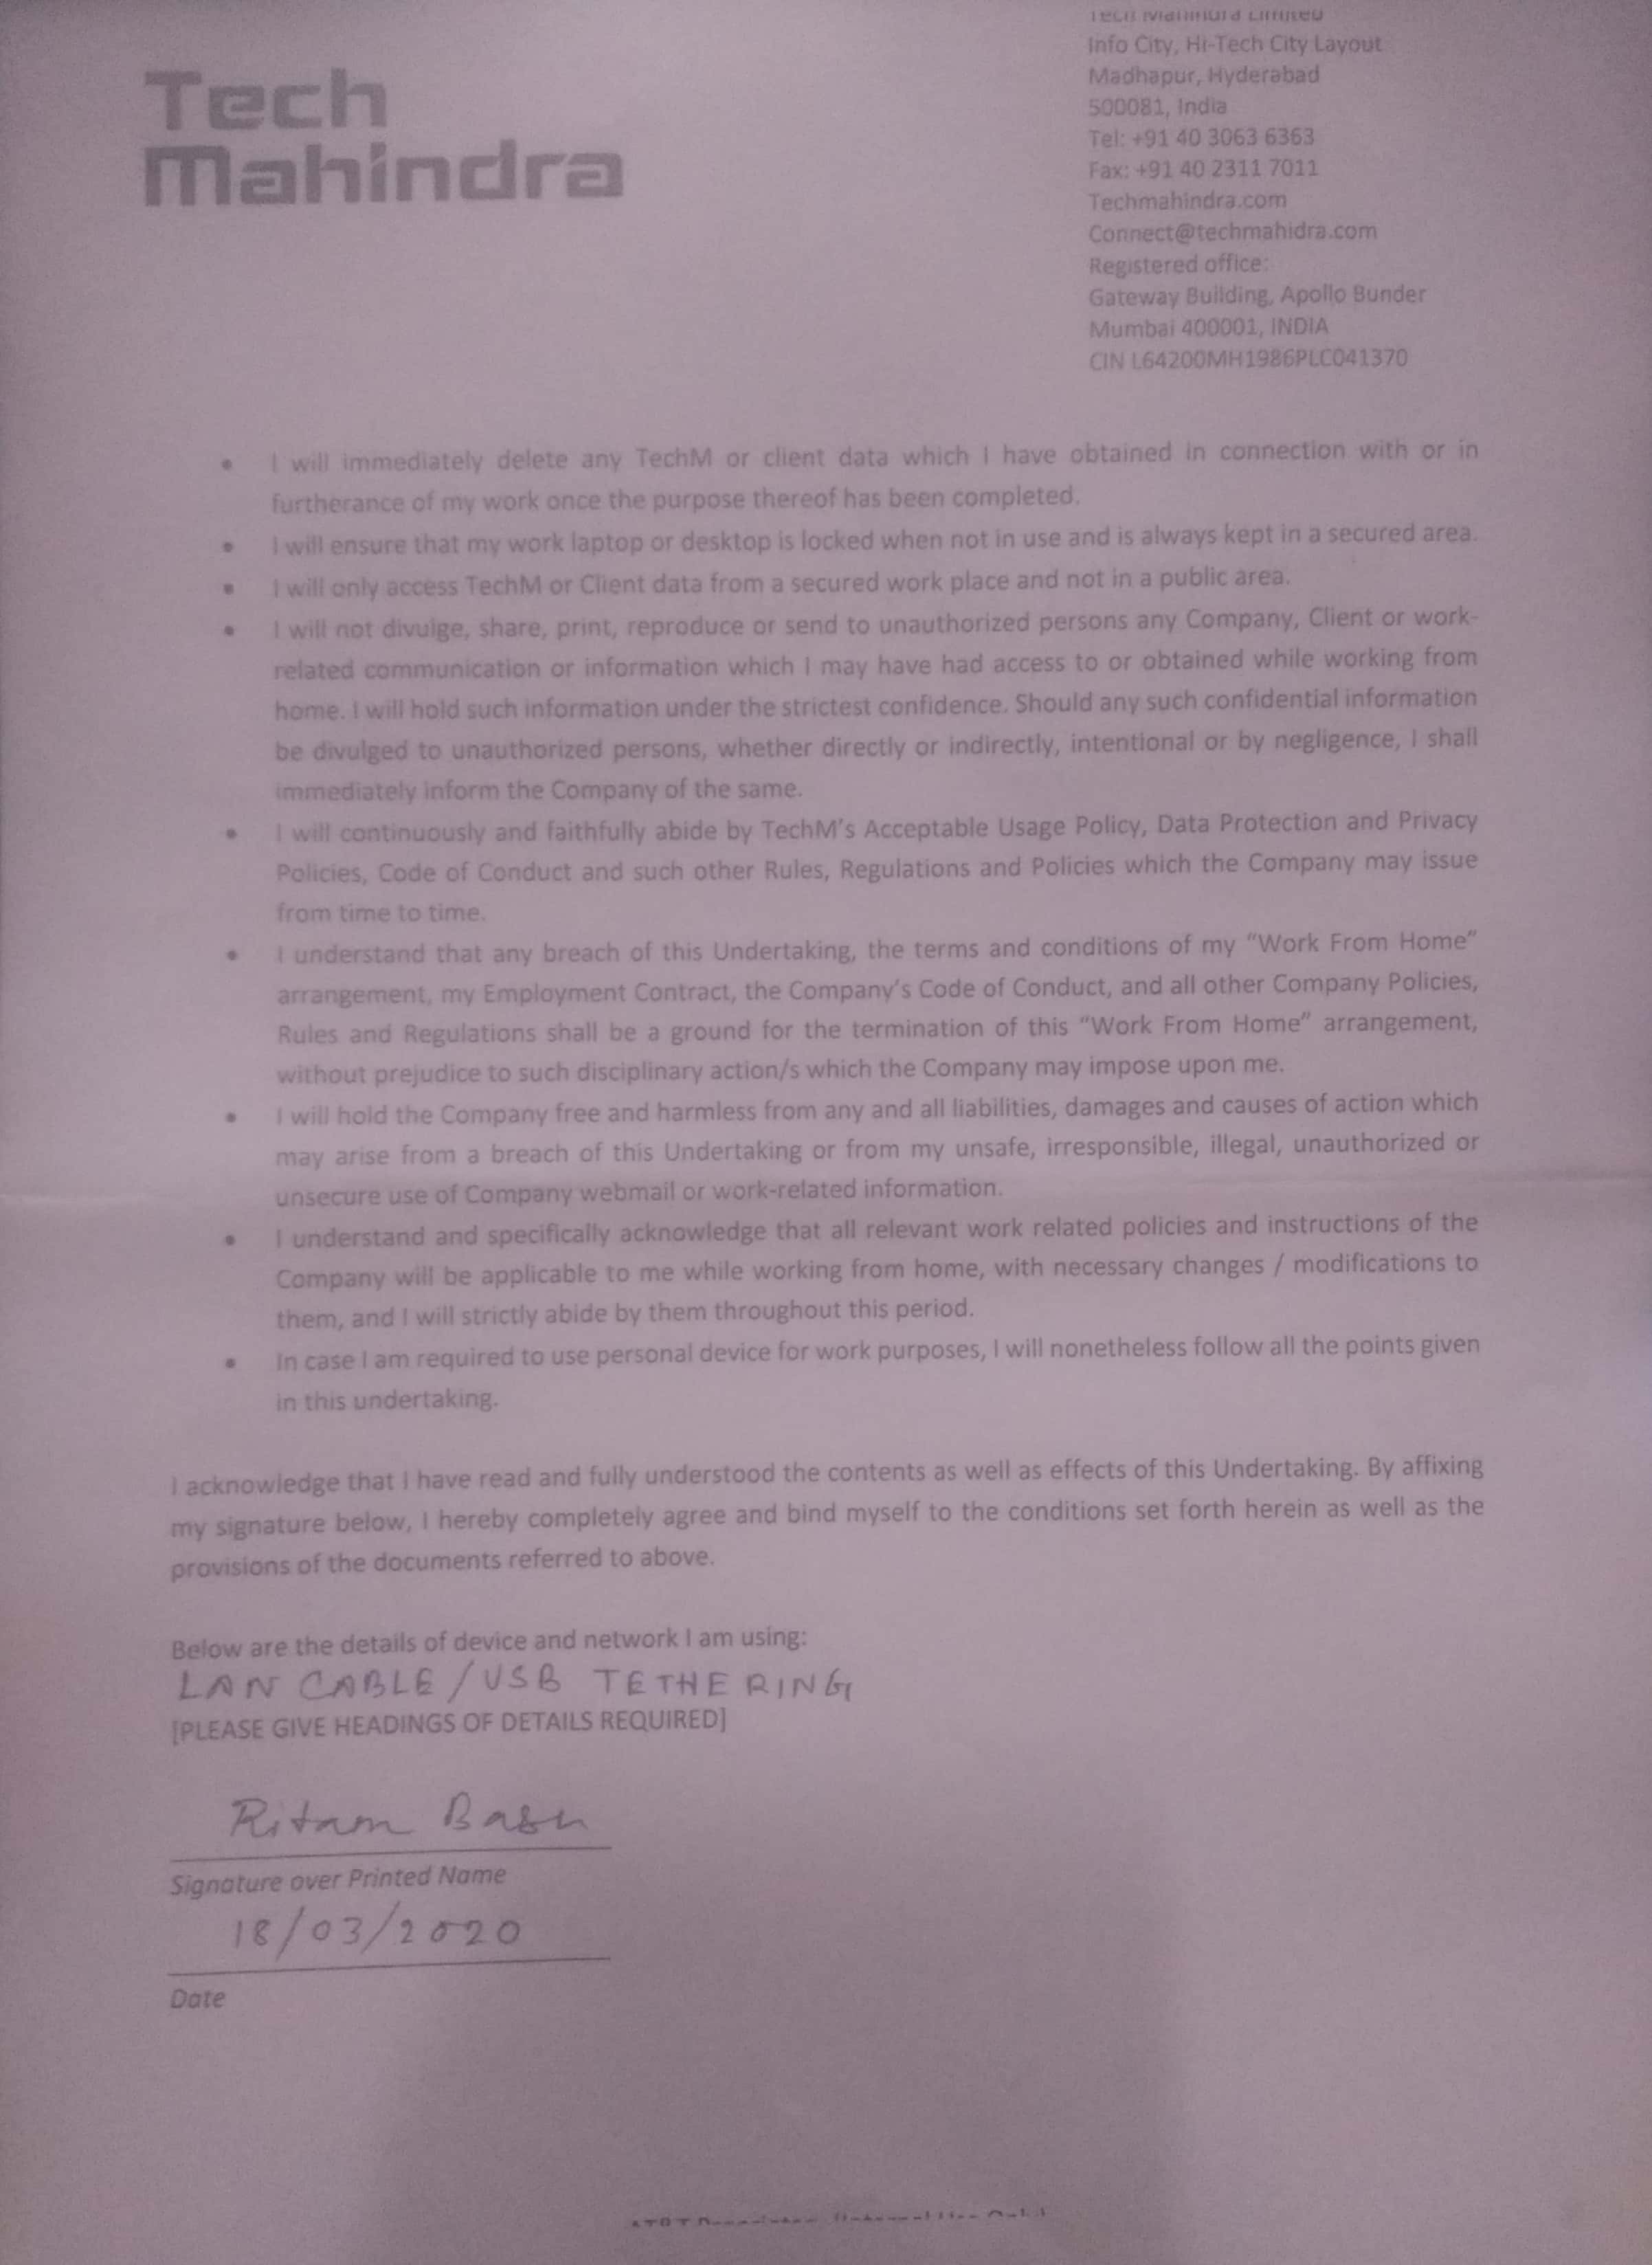 Tech
Mahindra
Tech Mahindra Limited
Info City, Hi-Tech City Layout
Madhapur, Hyderabad
500081, India
Tel: +91 40 3063 6363
Fax: +91 40 2311 7011
Techmahindra.com
Connect@techmahidra.com
Registered office:
Gateway Building, Apollo Bunder
Mumbai 400001, INDIA
CIN L64200MH1986PLC041370
• I will immediately delete any TechM or client data which I have obtained in connection with or in
furtherance of my work once the purpose thereof has been completed.
• I will ensure that my work laptop or desktop is locked when not in use and is always kept in a secured area.
• I will only access TechM or Client data from a secured work place and not in a public area.
• I will not divulge, share, print, reproduce or send to unauthorized persons any Company, Client or work-
related communication or information which I may have had access to or obtained while working from
home. I will hold such information under the strictest confidence. Should any such confidential information
be divulged to unauthorized persons, whether directly or indirectly, intentional or by negligence, I shall
immediately inform the Company of the same.
• I will continuously and faithfully abide by TechM's Acceptable Usage Policy, Data Protection and Privacy
Policies, Code of Conduct and such other Rules, Regulations and Policies which the Company may issue
from time to time.
• I understand that any breach of this Undertaking, the terms and conditions of my "Work From Home"
arrangement, my Employment Contract, the Company's Code of Conduct, and all other Company Policies,
Rules and Regulations shall be a ground for the termination of this "Work From Home" arrangement,
without prejudice to such disciplinary action/s which the Company may impose upon me.
• I will hold the Company free and harmless from any and all liabilities, damages and causes of action which
may arise from a breach of this Undertaking or from my unsafe, irresponsible, illegal, unauthorized or
unsecure use of Company webmail or work-related information.
• I understand and specifically acknowledge that all relevant work related policies and instructions of the
Company will be applicable to me while working from home, with necessary changes / modifications to
them, and I will strictly abide by them throughout this period.
• In case I am required to use personal device for work purposes, I will nonetheless follow all the points given
in this undertaking.
I acknowledge that I have read and fully understood the contents as well as effects of this Undertaking. By affixing
my signature below, I hereby completely agree and bind myself to the conditions set forth herein as well as the
provisions of the documents referred to above.
Below are the details of device and network I am using:
LAN CABLE/USB TETHERING
[PLEASE GIVE HEADINGS OF DETAILS REQUIRED]
Ritam Basu
Signature over Printed Name
18/03/2020
Date